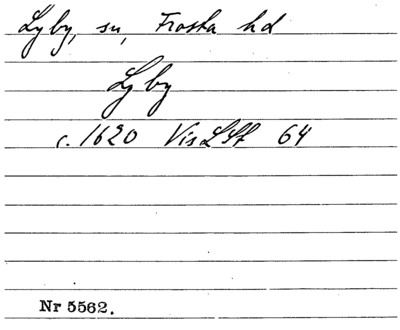 Lyby, sn, Frosta hd
Lyby
c. 1620 VisLSt 64
Nr 5562.